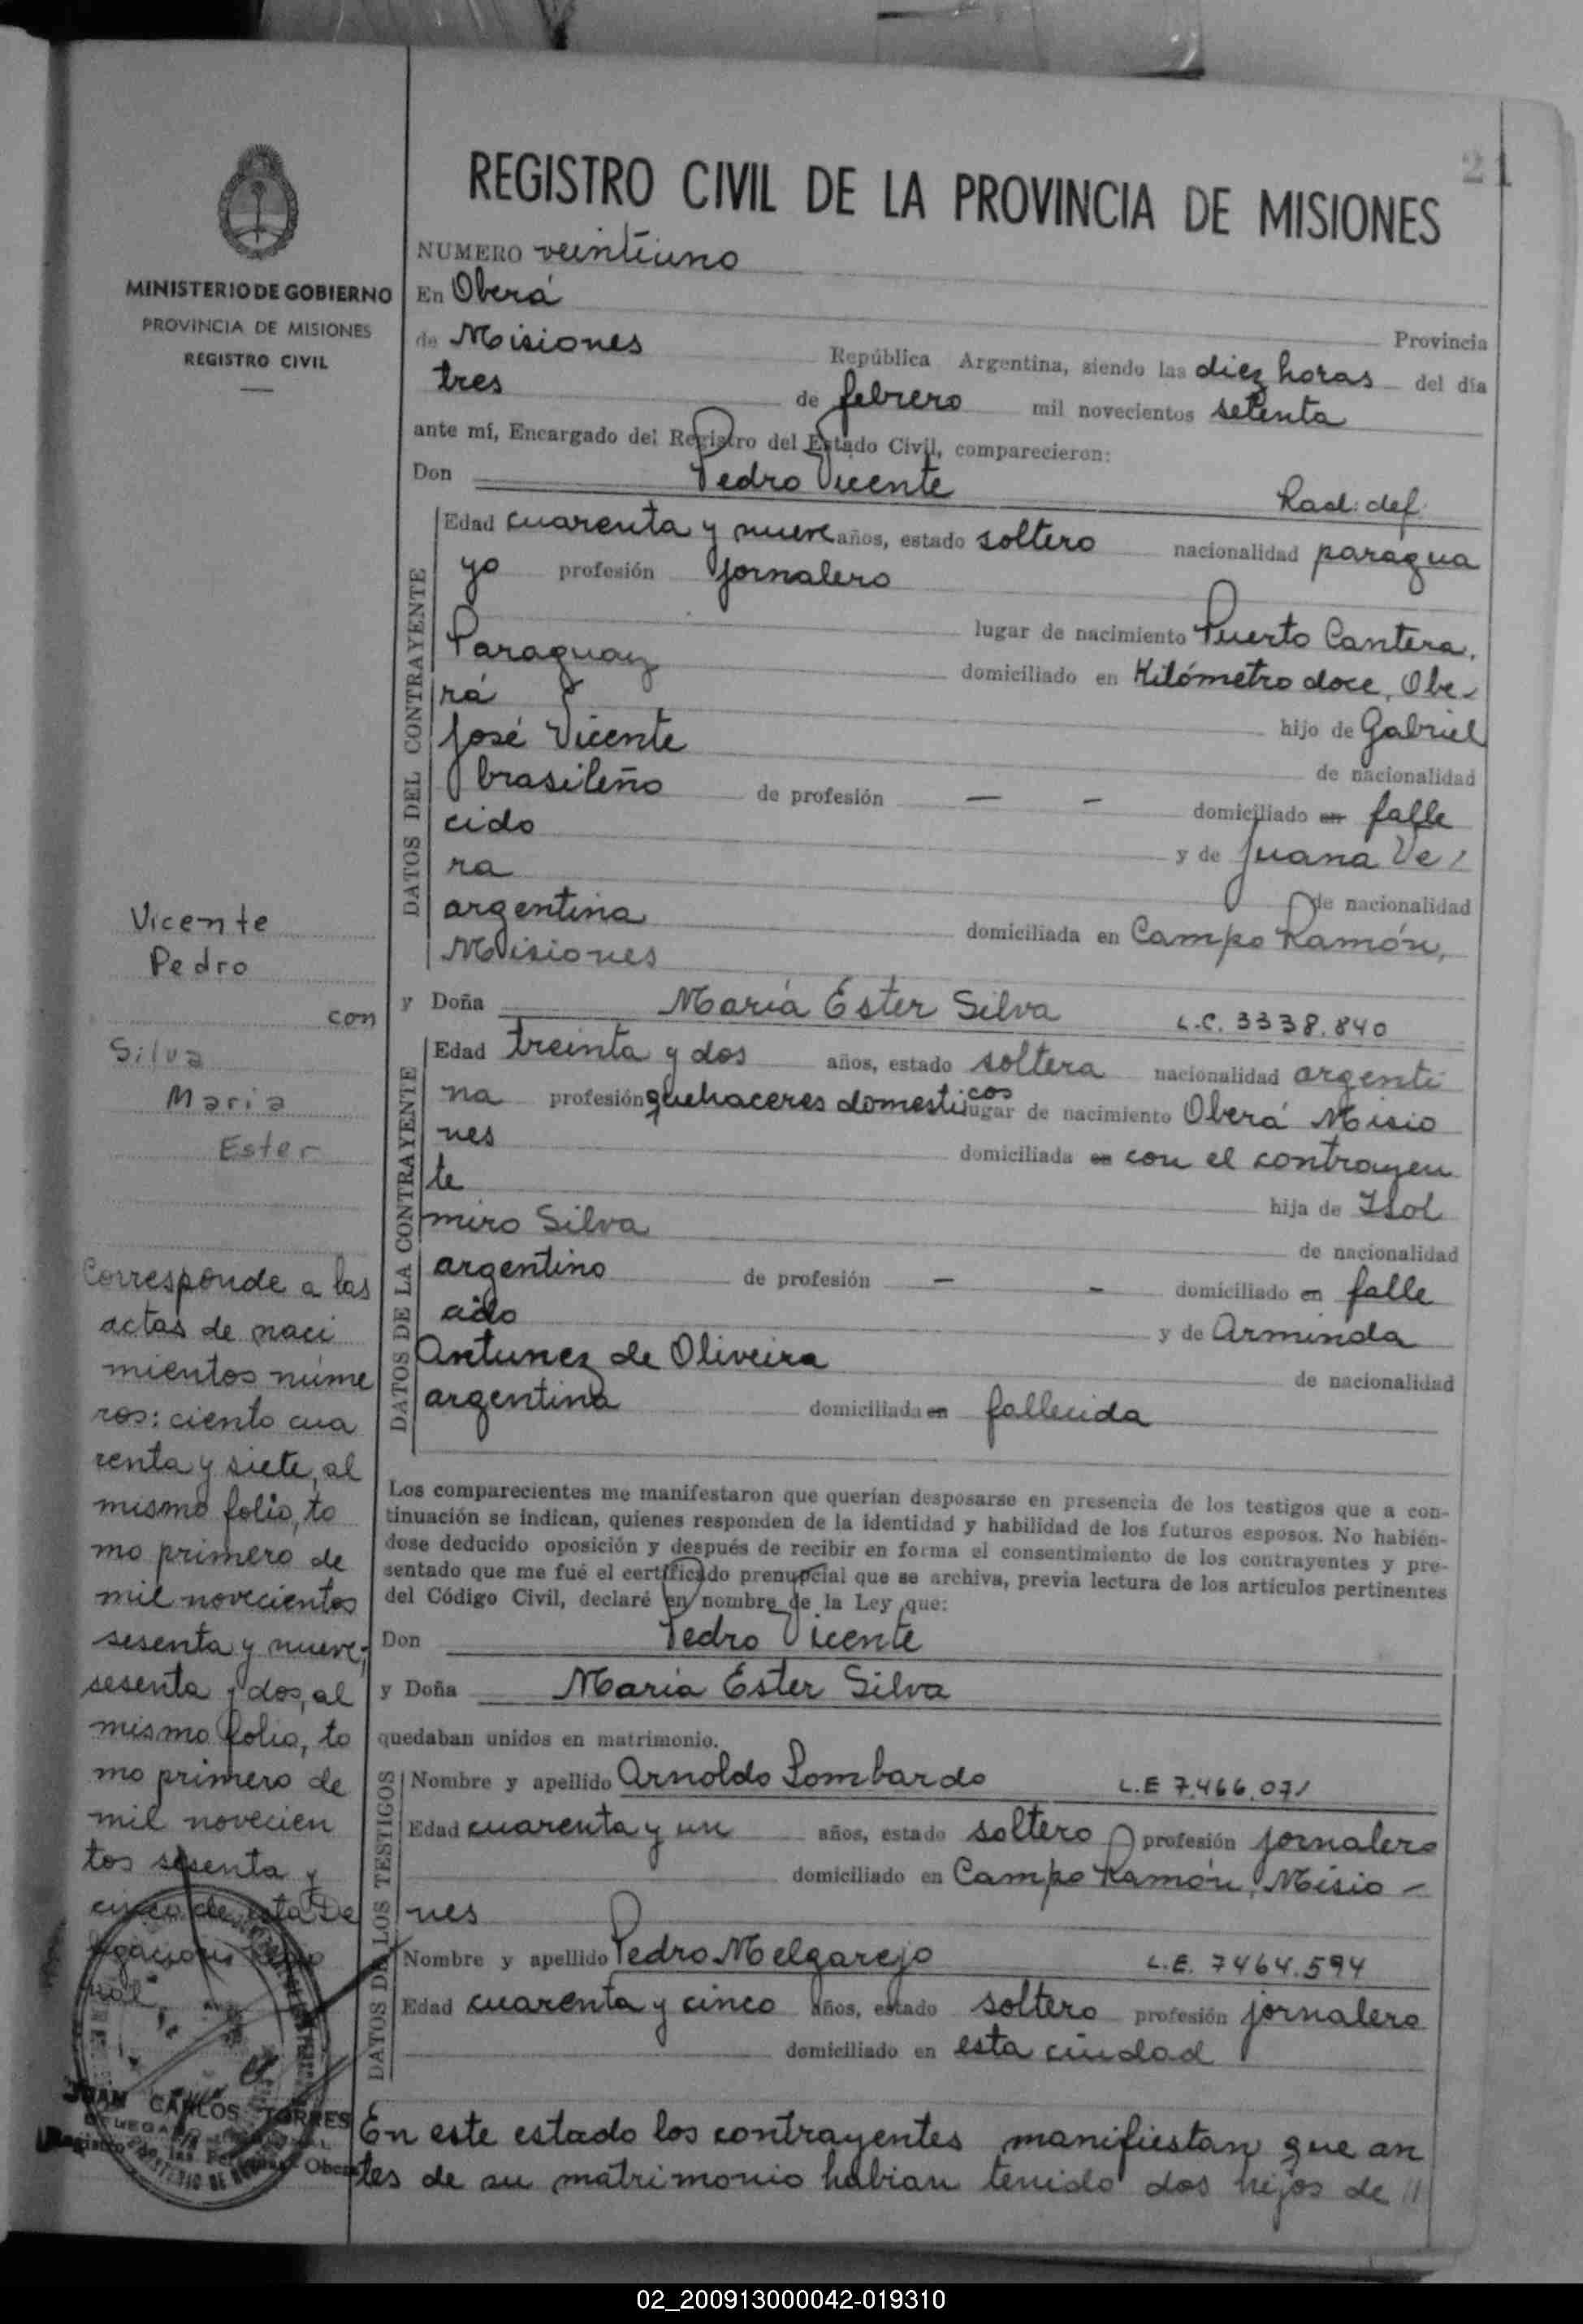 21
REGISTRO CIVIL DE LA PROVINCIA DE MISIONES
MINISTERIO DE GOBIERNO
PROVINCIA DE MISIONES
REGISTRO CIVIL
NUMERO veintiuno
En Oberá Provincia
de Misiones República Argentina, siendo las diez horas del día
tres de febrero mil novecientos setenta
ante mí, Encargado del Registro del Estado Civil, comparecieron:
Don Pedro Vicente Rad: def.
DATOS DEL CONTRAYENTE
Edad cuarenta y nueve años, estado soltero nacionalidad paragua
yo profesión jornalero
lugar de nacimiento Puerto Cantera,
Paraguay domiciliado en Kilómetro doce, Obe-
rá hijo de Gabriel
José Vicente de nacionalidad
brasileño de profesión — - domiciliado en falle
cido y de Juana Ve/
ra de nacionalidad
argentina domiciliada en Campo Ramón,
Misiones
y Doña María Ester Silva L.C. 3338.840
DATOS DE LA CONTRAYENTE
Edad treinta y dos años, estado soltera nacionalidad argenti
na profesión quehaceres domesticos lugar de nacimiento Oberá Misio
nes domiciliada en con el contrayen
te hija de Isol
miro Silva de nacionalidad
argentino de profesión - - domiciliado en falle
cido y de Arminda
Antunez de Oliveira de nacionalidad
argentina domiciliada en fallecida
Los comparecientes me manifestaron que querían desposarse en presencia de los testigos que a con-
tinuación se indican, quienes responden de la identidad y habilidad de los futuros esposos. No habién-
dose deducido oposición y después de recibir en forma el consentimiento de los contrayentes y pre-
sentado que me fué el certificado prenupcial que se archiva, previa lectura de los artículos pertinentes
del Código Civil, declaré en nombre de la Ley que:
Don Pedro Vicente
y Doña María Ester Silva
quedaban unidos en matrimonio.
DATOS DE LOS TESTIGOS
Nombre y apellido Arnoldo Lombardo L.E 7.466.071
Edad cuarenta y un años, estado soltero profesión jornalero
domiciliado en Campo Ramón, Misio -
nes
Nombre y apellido Pedro Melgarejo L.E. 7464.594
Edad cuarenta y cinco años, estado soltero profesión jornalero
domiciliado en esta ciudad
En este estado los contrayentes manifiestan que an
tes de su matrimonio habian tenido dos hijos de //
Vicente
Pedro
con
Silva
Maria
Ester
Corresponde a las
actas de naci
mientos núme
ros: ciento cua
renta y siete, al
mismo folio, to
mo primero de
mil novecientos
sesenta y nueve;
sesenta y dos, al
mismo folio, to
mo primero de
mil novecien
tos sesenta y
cinco de esta De
JUAN CARLOS TORRES
Registro de las Personas - Oberá
02_200913000042-019310